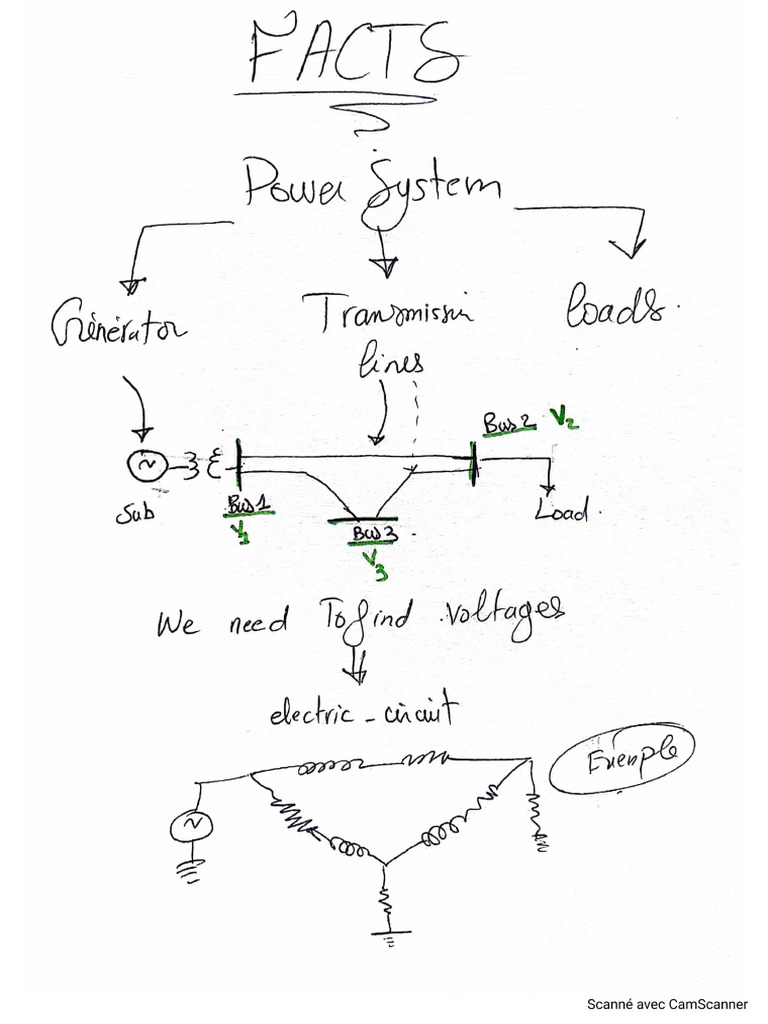 FACTS
Power System
Générator
Transmissin
lines
loads.
Bus 2 V2
~
Sub
Bus 1
V1
Bus 3
V3
Load.
We need To find voltages
electric - circuit
Exemple
~
Scanné avec CamScanner